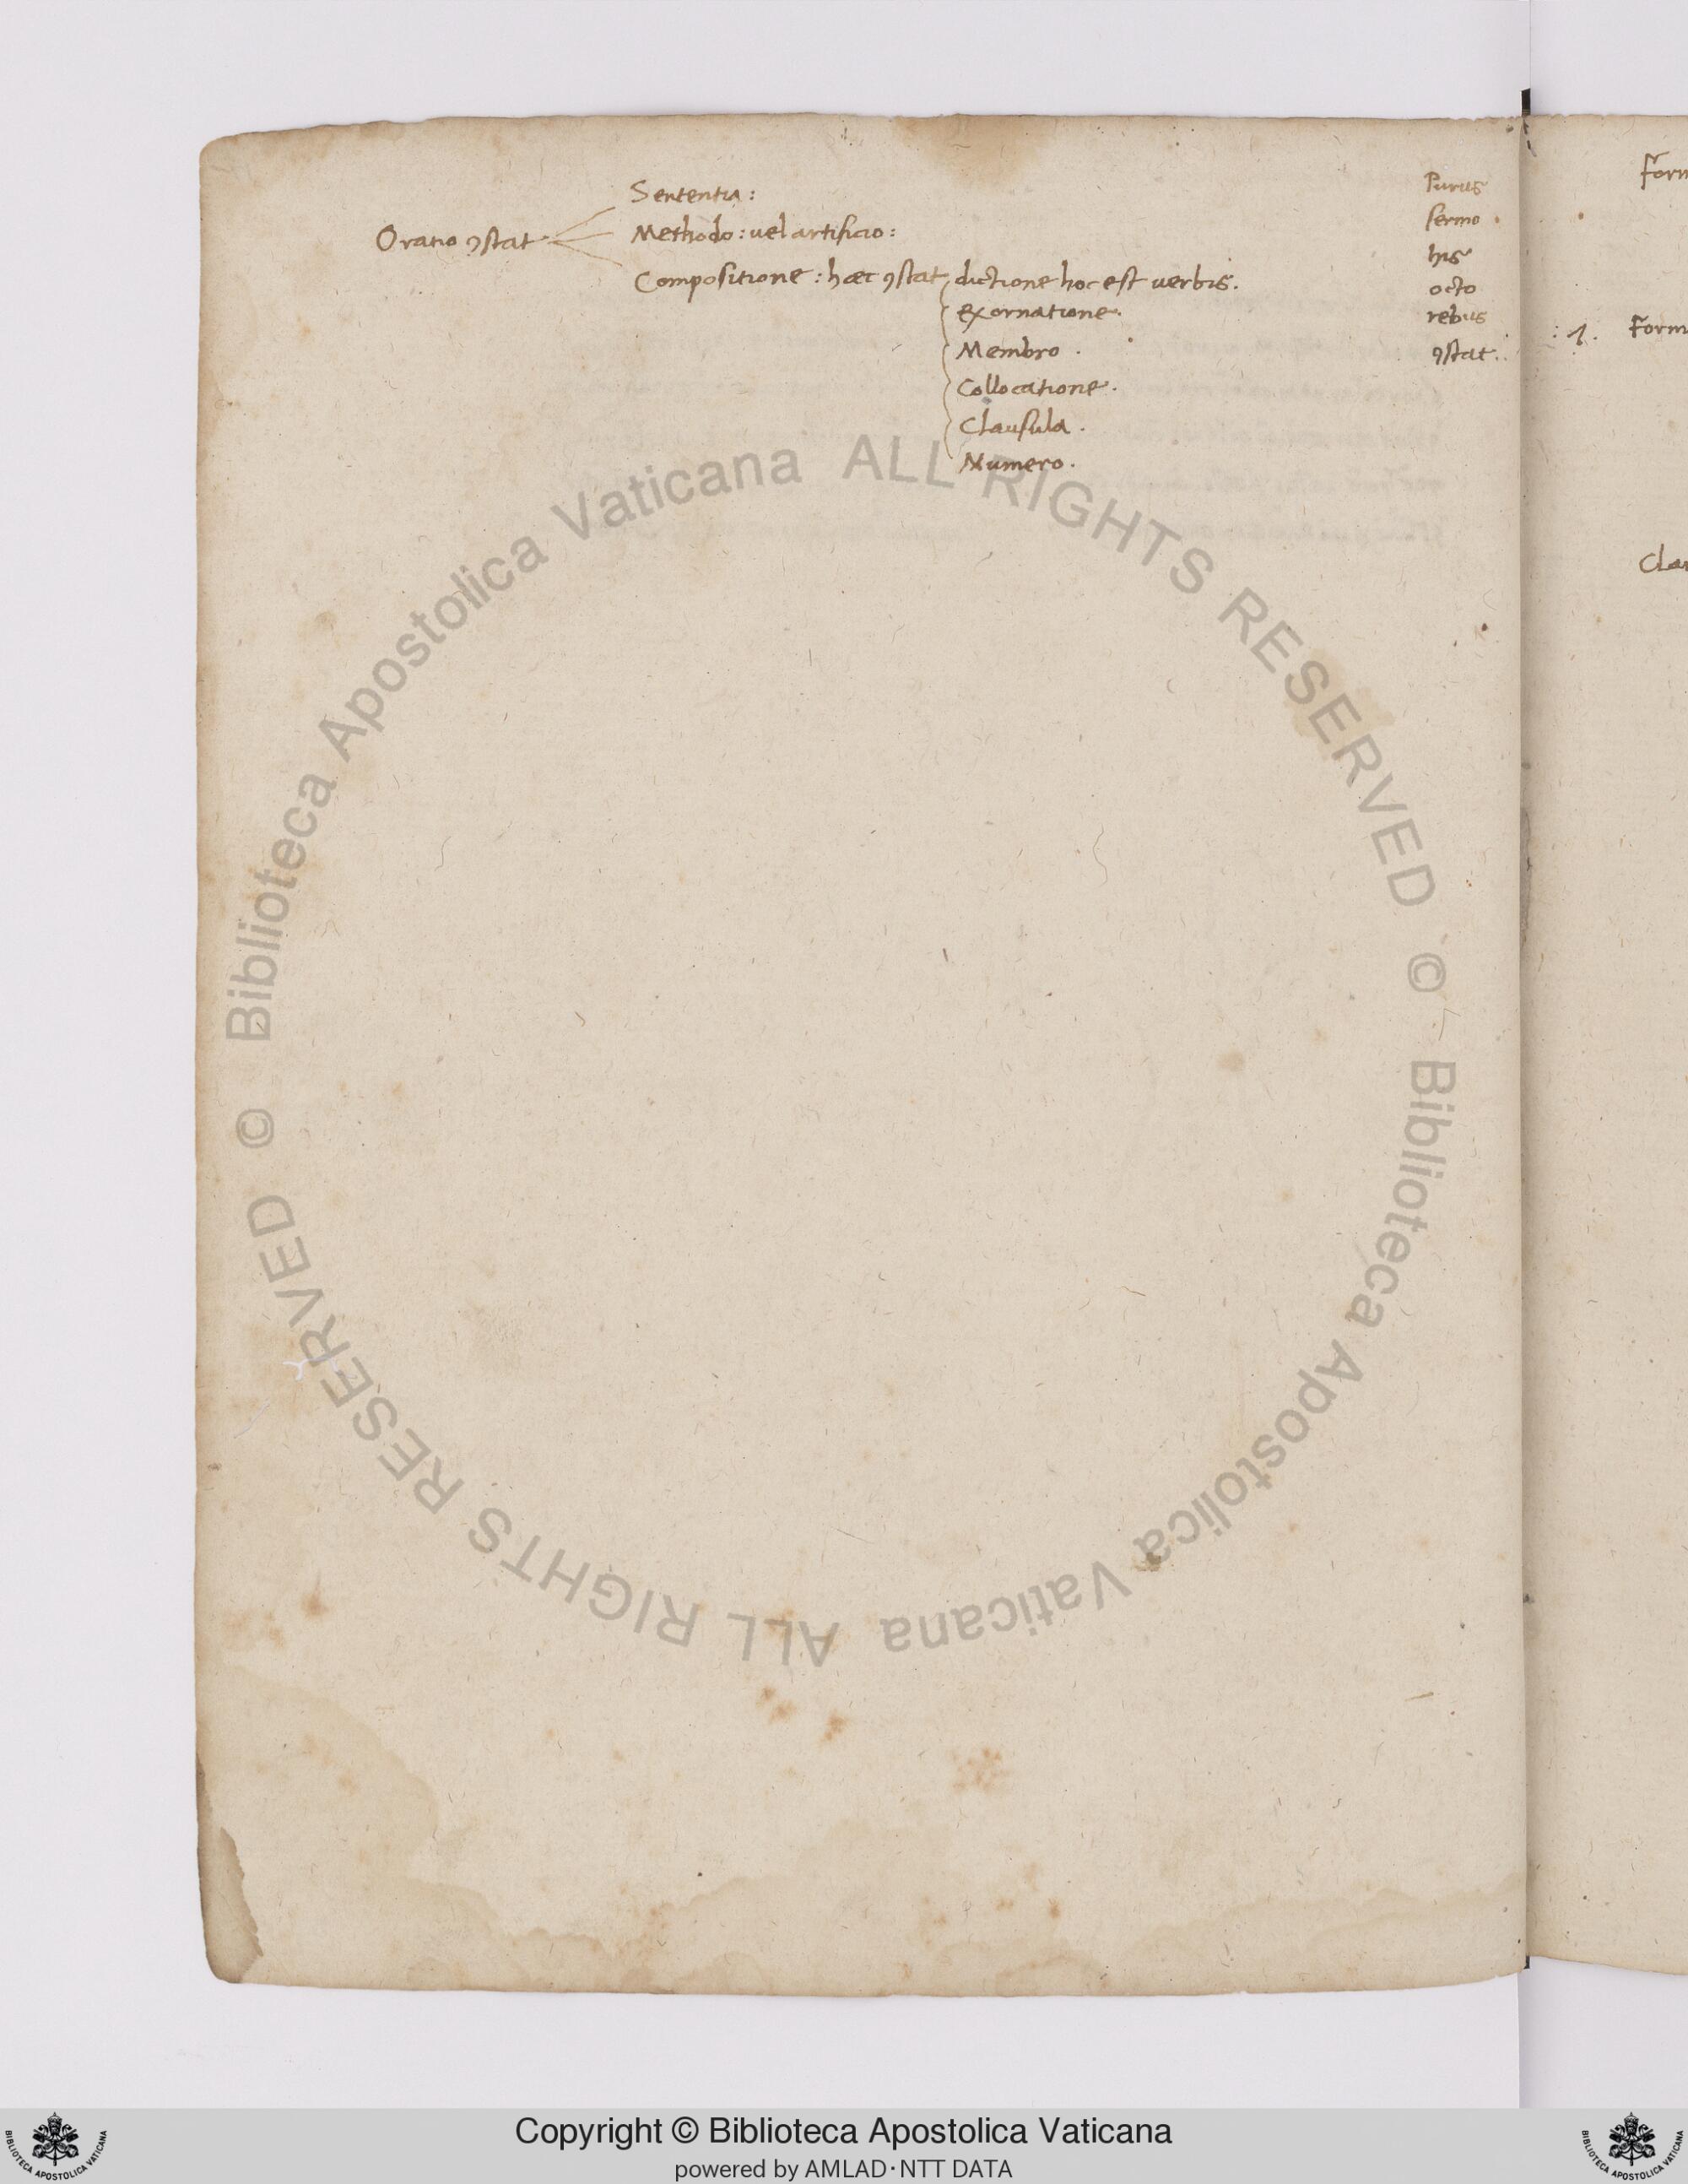 Sententia:
Oratio ꝯstat
Methodo: uel artificio:
Compositione: hæc ꝯstat dictione hoc est uerbis.
exornatione.
Membro.
Collocatione.
Clausula.
Numero.
Purus
sermo.
his
octo
rebus
ꝯstat.
Form
: 1. Form
Cla
© Biblioteca Apostolica Vaticana ALL RIGHTS RESERVED
© Biblioteca Apostolica Vaticana ALL RIGHTS RESERVED
Copyright © Biblioteca Apostolica Vaticana
powered by AMLAD·NTT DATA
BIBLIOTECA APOSTOLICA VATICANA
BIBLIOTECA APOSTOLICA VATICANA